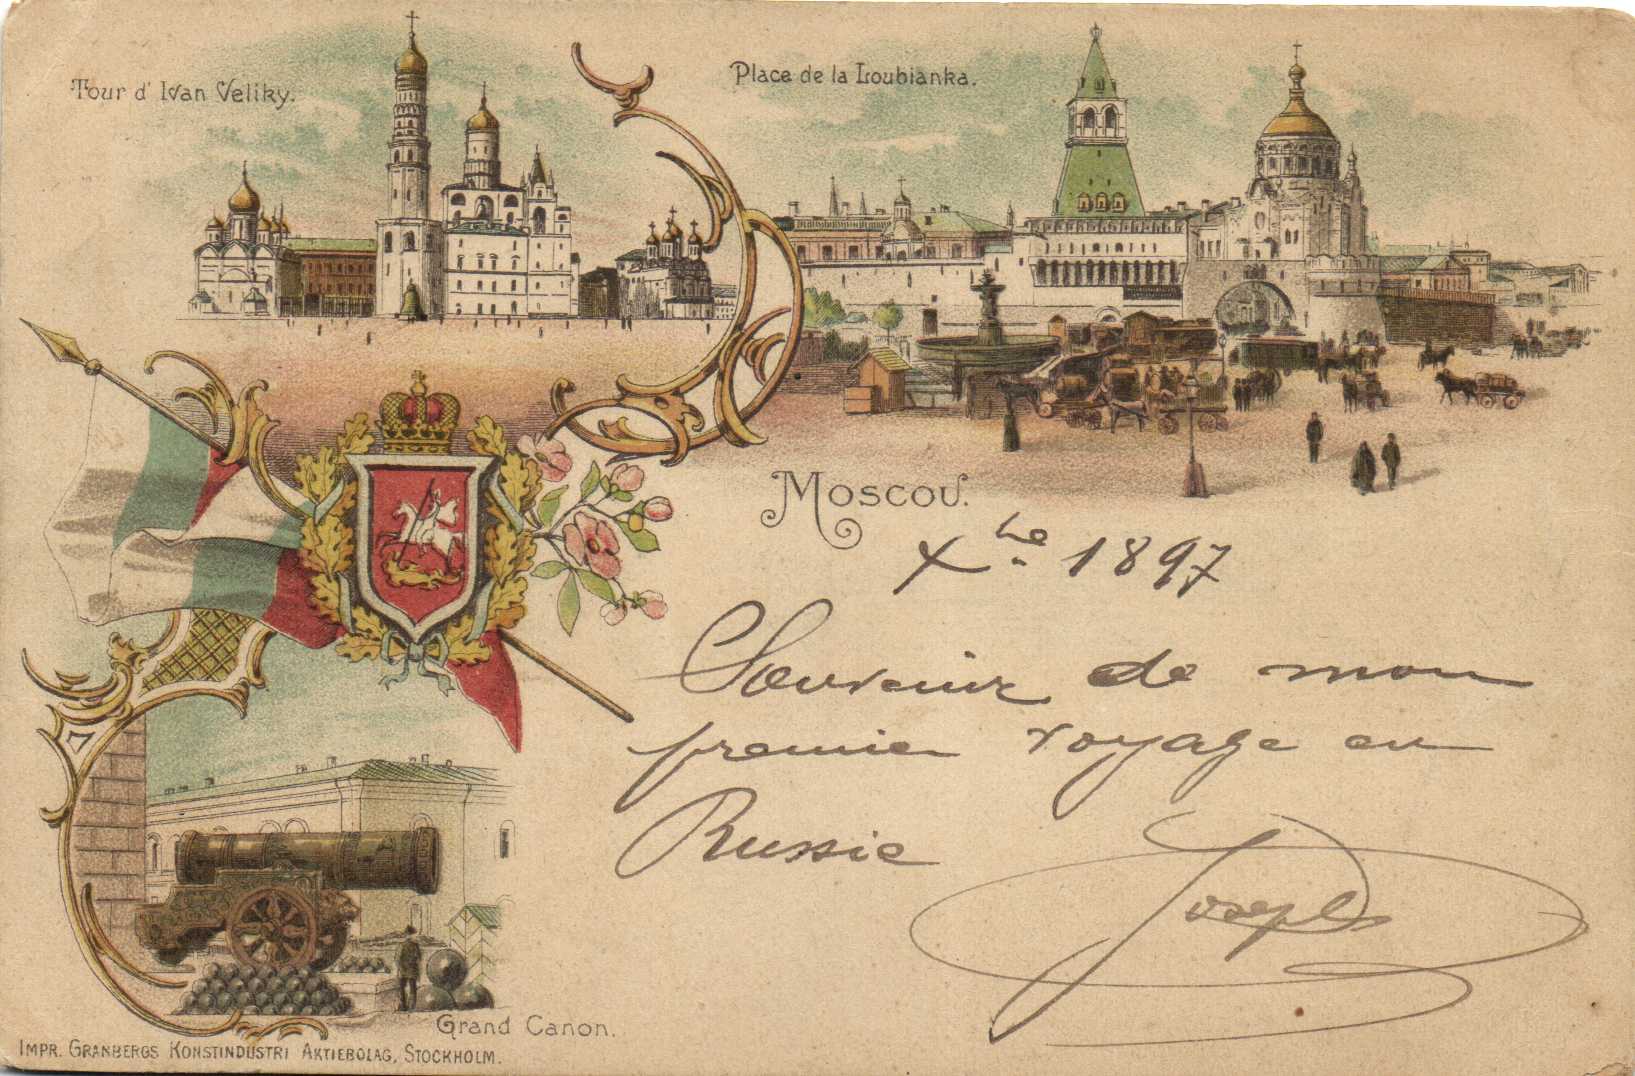 Tour d' Ivan Veliky.
Place de la Loubianka.
Moscou.
Xbre 1897
Souvenir de mon
premier voyage en
Russie
Joseph
Grand Canon.
IMPR. GRANBERGS KONSTINDUSTRI AKTIEBOLAG, STOCKHOLM.